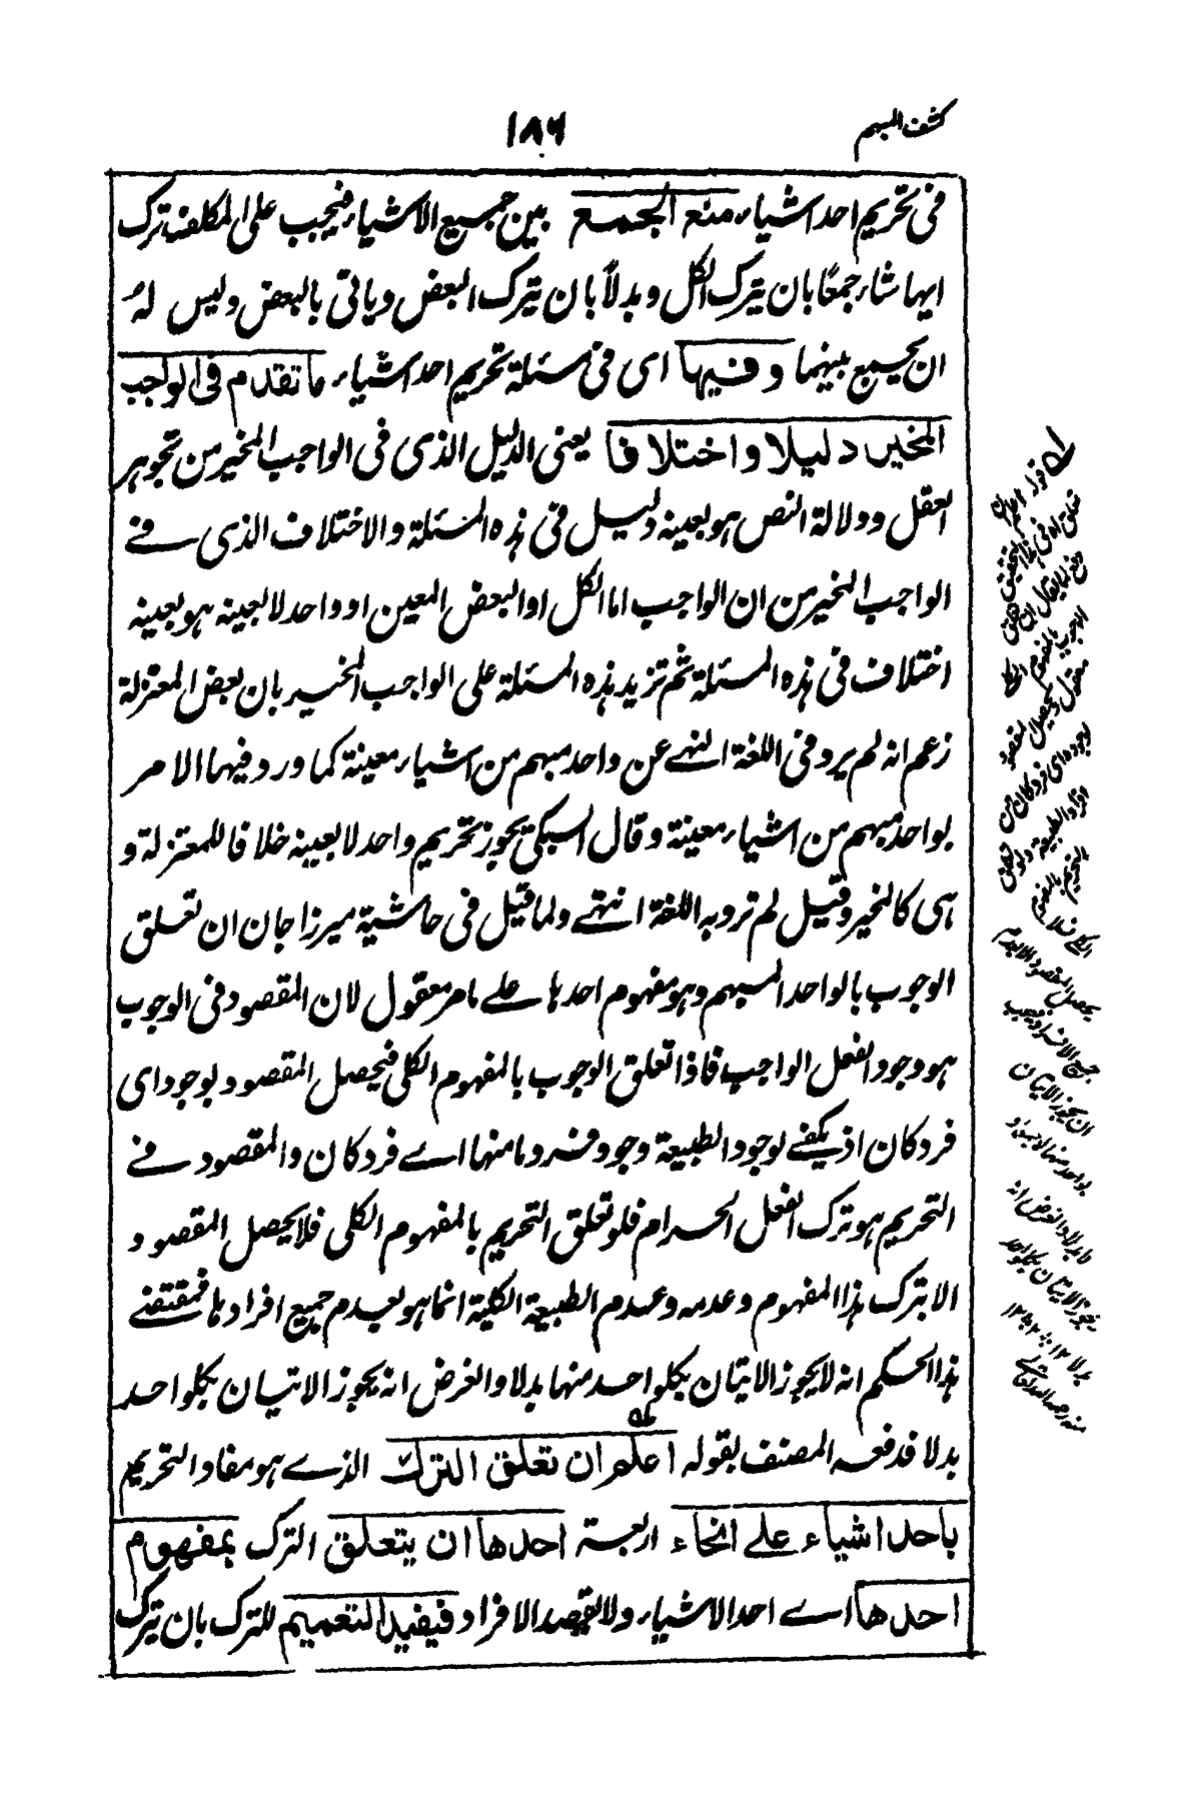 كشف المبهم
١٨٦
فى تحريم احد اشياء منع الجمع بين جميع الاشياء فيجب على المكلف ترك
ايها شاء جمعًا بان يترك الكل وبدلاً بان يترك البعض وياتى بالبعض وليس له
ان يجمع بينهما وفيها اى فى مسئلة تحريم احد اشياء ما تقدم فى الواجب
المخير دليلا واختلافا يعنى الدليل الذى فى الواجب المخير من تجويز
العقل ودلالة النص هو بعينه دليل فى هذه المسئلة والاختلاف الذى فے
الواجب المخير من ان الواجب اما الكل او البعض المعين او واحد لا بعينه هو بعينه
اختلاف فى هذه المسئلة ثم تزيد هذه المسئلة على الواجب المخير بان بعض المعتزلة
زعم انه لم يرد فى اللغة النهے عن واحد مبهم من اشياء معينة كما ورد فيها الامر
بواحد مبهم من اشياء معينة وقال السبكى يجوز تحريم واحد لا بعينه خلافا للمعتزلة و
هى كالمخير وقيل لم ترد به اللغة انتهے ولما قيل فى حاشية ميرزا جان ان تعلق
الوجوب بالواحد المبهم وهو مفهوم احدها علے ما مر معقول لان المقصود فى الوجوب
هو وجود الفعل الواجب فاذا تعلق الوجوب بالمفهوم الكلى فيحصل المقصود بوجود اى
فرد كان اذ يكفے لوجود الطبيعة وجود فرد ما منها اے فرد كان والمقصود فے
التحريم هو ترك الفعل الحرام فلو تعلق التحريم بالمفهوم الكلى فلا يحصل المقصود
الا بترك هذا المفهوم وعدمه وعدم الطبيعة الكلية انما هو بعدم جميع افرادها فمقتضے
هذا الحكم انه لا يجوز الاتيان بكلواحد منها بدلا والغرض انه يجوز الاتيان بكلواحد
بدلا فدفعه المصنف بقوله اعلم ان تعلق الترك الذے هو مفاد التحريم
باحد اشياء علے انحاء اربعة احدها ان يتعلق الترك بمفهوم
احدها اے احد الاشياء ولا يقصد الافراد فيفيد التعميم للترك بان يترك
قوله اعلم ان
تعلق الخ فى هذا التحقيق
دفع لما يقال ان تعلق
الوجوب بالمفهوم الكلى
معقول يحصل المقصود
بوجود اى فرد كان من
افراد الطبيعة ولو تعلق
التحريم بالمفهوم
الكلى فلا
يحصل المقصود الا بعدم
جميع الافراد فيجب
ان يجوز الاتيان
بواحد منها
بدلا والغرض انه
يجوز الاتيان بكلواحد
بدلا ١٢
منه رحمه الله تعالے